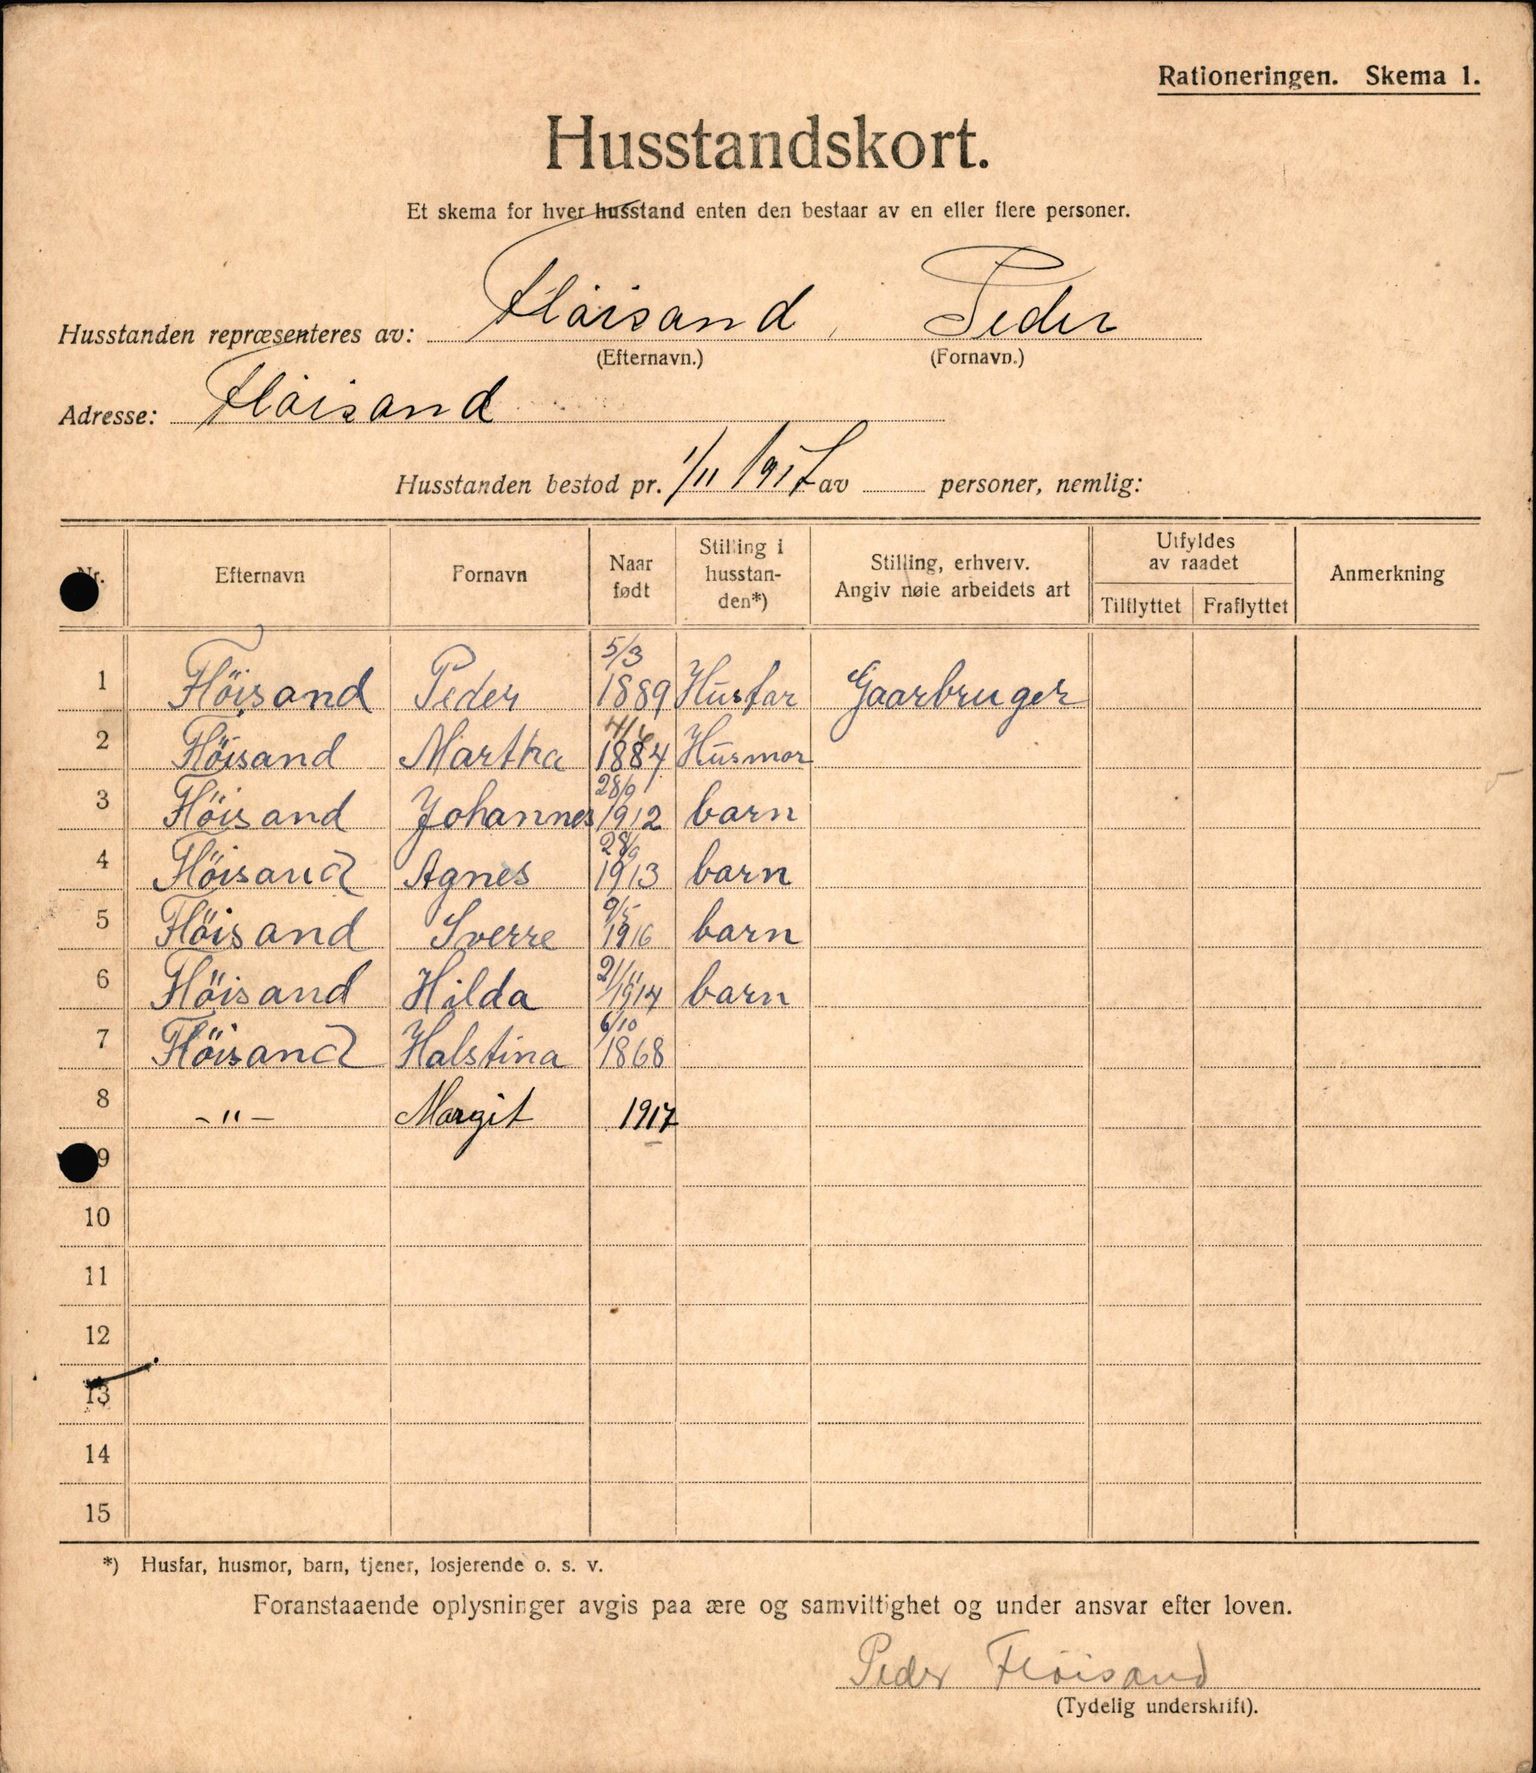 Rationeringen. Skema 1.
Husstandskort.
Et skema for hver husstand enten den bestaar av en eller flere personer.
Husstanden repræsenteres av: Fløisand, Peder
(Efternavn.) (Fornavn.)
Adresse: Fløisand
Husstanden bestod pr. 1/11 1917 av personer, nemlig:
Nr. Efternavn Fornavn Naar født Stilling i husstanden*) Stilling, erhverv. Angiv nøie arbeidets art Utfyldes av raadet Tilflyttet Fraflyttet Anmerkning
1 Flöisand Peder 5/3 1889 Husfar Gaarbruger
2 Flöisand Martha 1884 Husmor
3 Flöisand Johannes 28/9 1912 barn
4 Flöisand Agnes 28/9 1913 barn
5 Flöisand Sverre 9/5 1916 barn
6 Flöisand Hilda 21/11 1914 barn
7 Flöisand Halstina 6/10 1868
8 -"- Margit 1917
9
10
11
12
13
14
15
*) Husfar, husmor, barn, tjener, losjerende o. s. v.
Foranstaaende oplysninger avgis paa ære og samvittighet og under ansvar efter loven.
Peder Flöisand
(Tydelig underskrift).